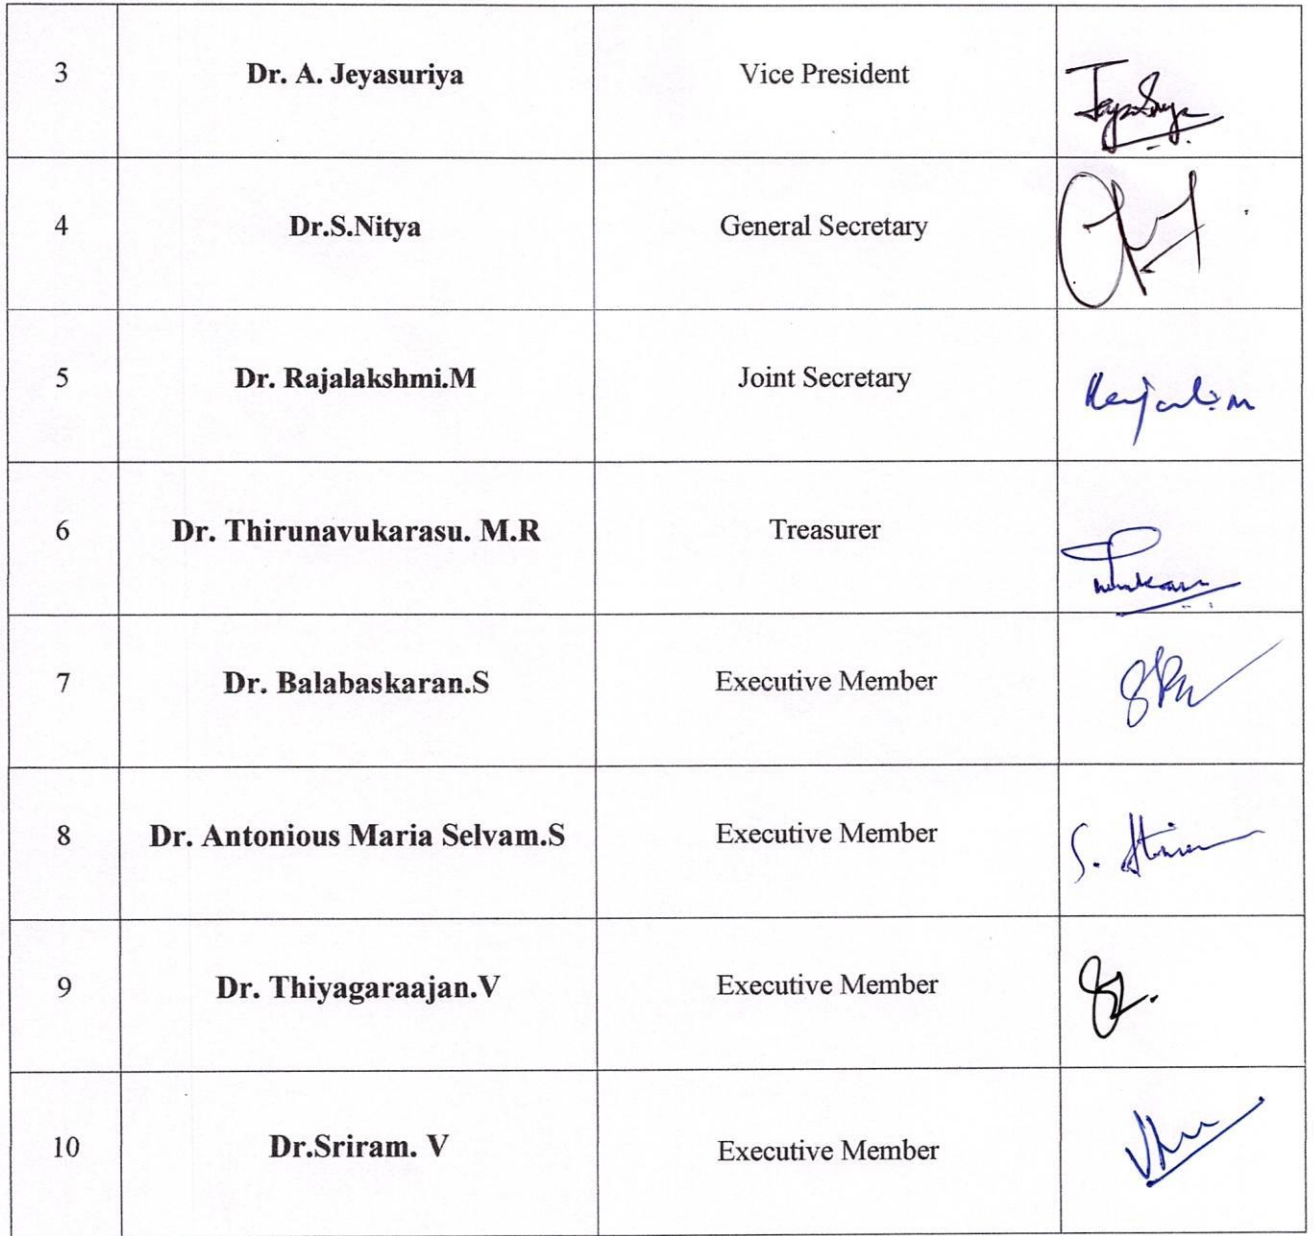 3 Dr. A. Jeyasuriya Vice President
4 Dr.S.Nitya General Secretary
5 Dr. Rajalakshmi.M Joint Secretary
6 Dr. Thirunavukarasu. M.R Treasurer
7 Dr. Balabaskaran.S Executive Member
8 Dr. Antonious Maria Selvam.S Executive Member
9 Dr. Thiyagaraajan.V Executive Member
10 Dr.Sriram. V Executive Member